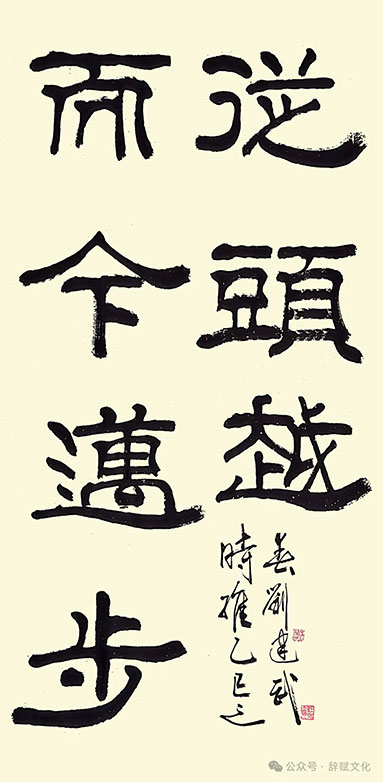 而今邁步
從頭越
時維乙巳之
春劉建武
公众号 · 辞赋文化